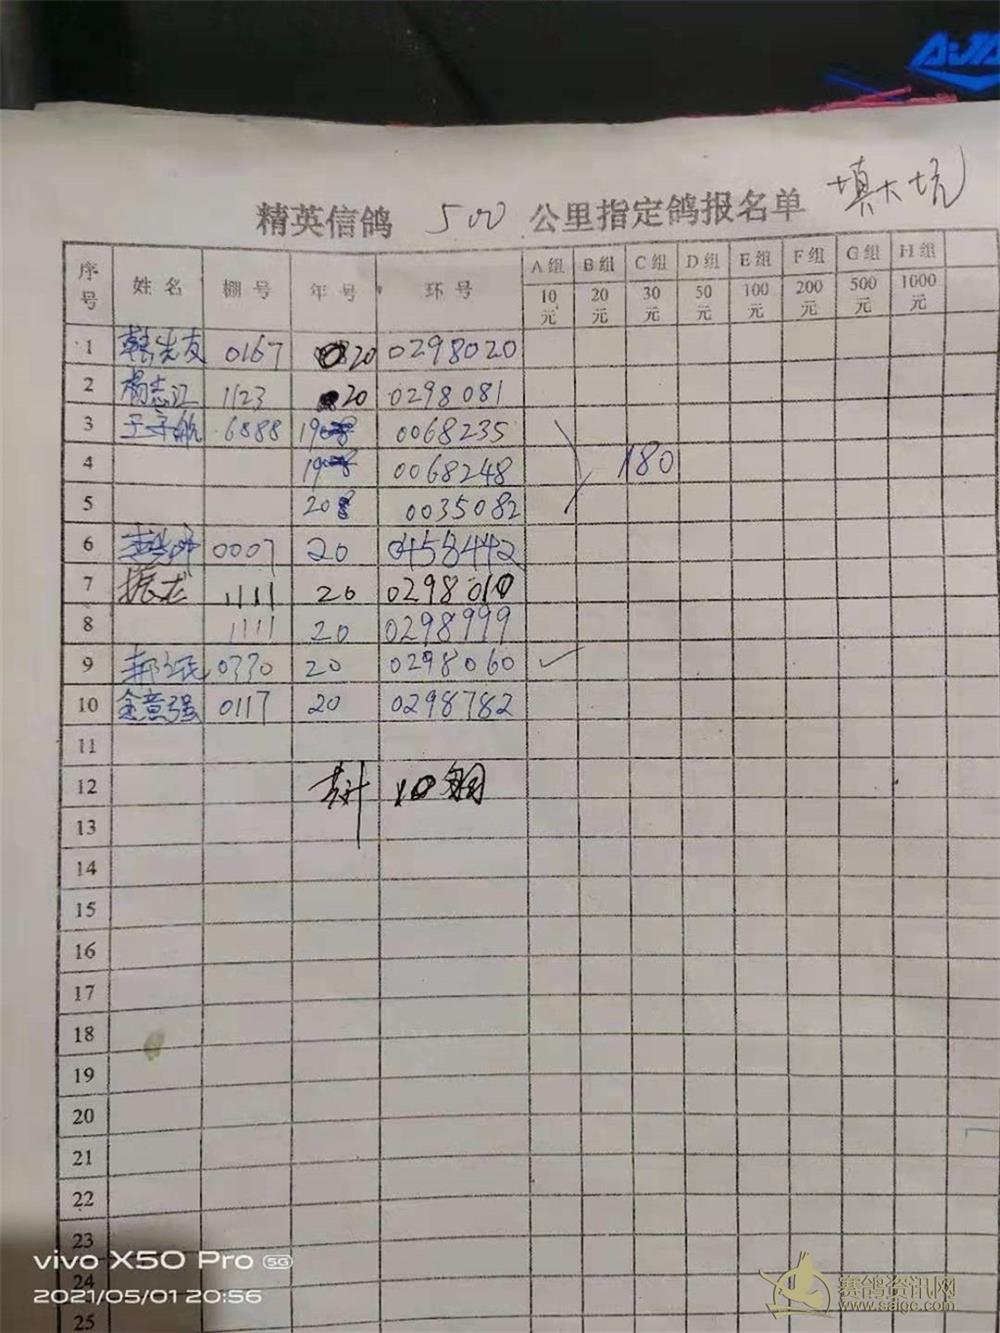 AJA
精英信鸽 500 公里指定鸽报名单 填大坑
序号 姓名 棚号 年号 环号 A组 B组 C组 D组 E组 F组 G组 H组
10元 20元 30元 50元 100元 200元 500元 1000元
1 韩先友 0167 20 0298020
2 杨志江 1123 20 0298081
3 王宇航 6888 19 0068235
4 19 0068248 180
5 20 0035082
6 0007 20 0458442
7 振龙 1111 20 0298010
8 1111 20 0298999
9 0770 20 0298060
10 金意强 0117 20 0298782
11
12 共计 10羽
13
14
15
16
17
18
19
20
21
22
23
24
25
vivo X50 Pro 5G
2021/05/01 20:56
赛鸽资讯网
www.saigc.com